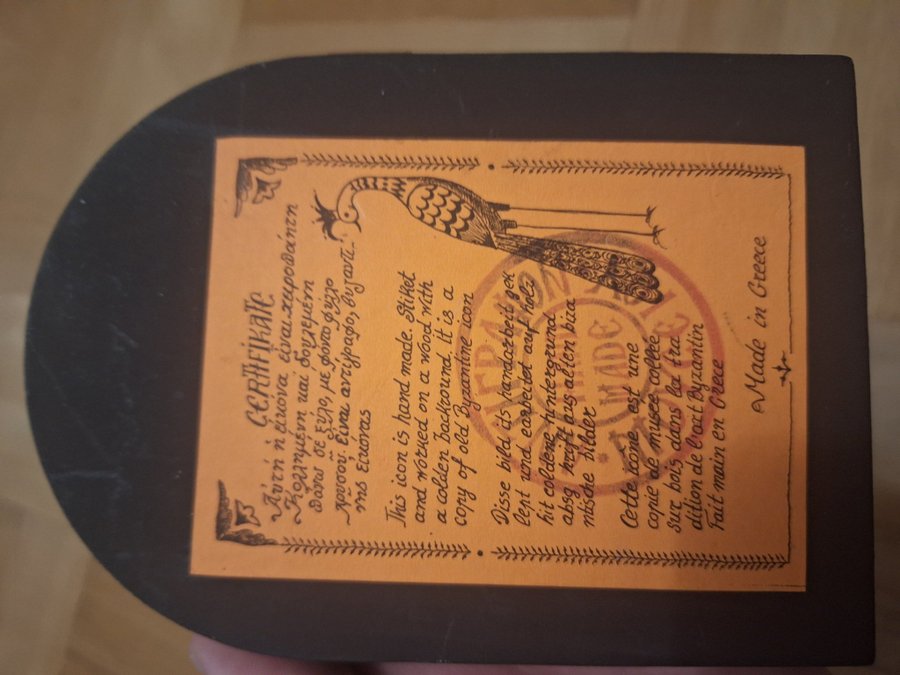 CERTIFIKATE
Αὐτή ἡ εἰκόνα εἶναι χειροποίητη
Κολλημένη καί δουλεμένη
πάνω σέ ξύλο, με φόντο φύλλο
χρυσοῦ. Εἶναι ἀντίγραφο, βυζαντι
νῆς εἰκόνας
This icon is hand made. Stiket
and worked on a wood with
a colden backround. it is a
copy of old Byzantine icon
Disse bild is handarbeit gek
lept und earbeitet auf holz
hit coldene huntergrund
absg hrift aus alten biza
ntische bilder
Cette icône est une
copie de musee collée
sur bois dans la tra
dition de l'art Byzantin
Fait main en Grece
Made in Greece
HAND
MADE